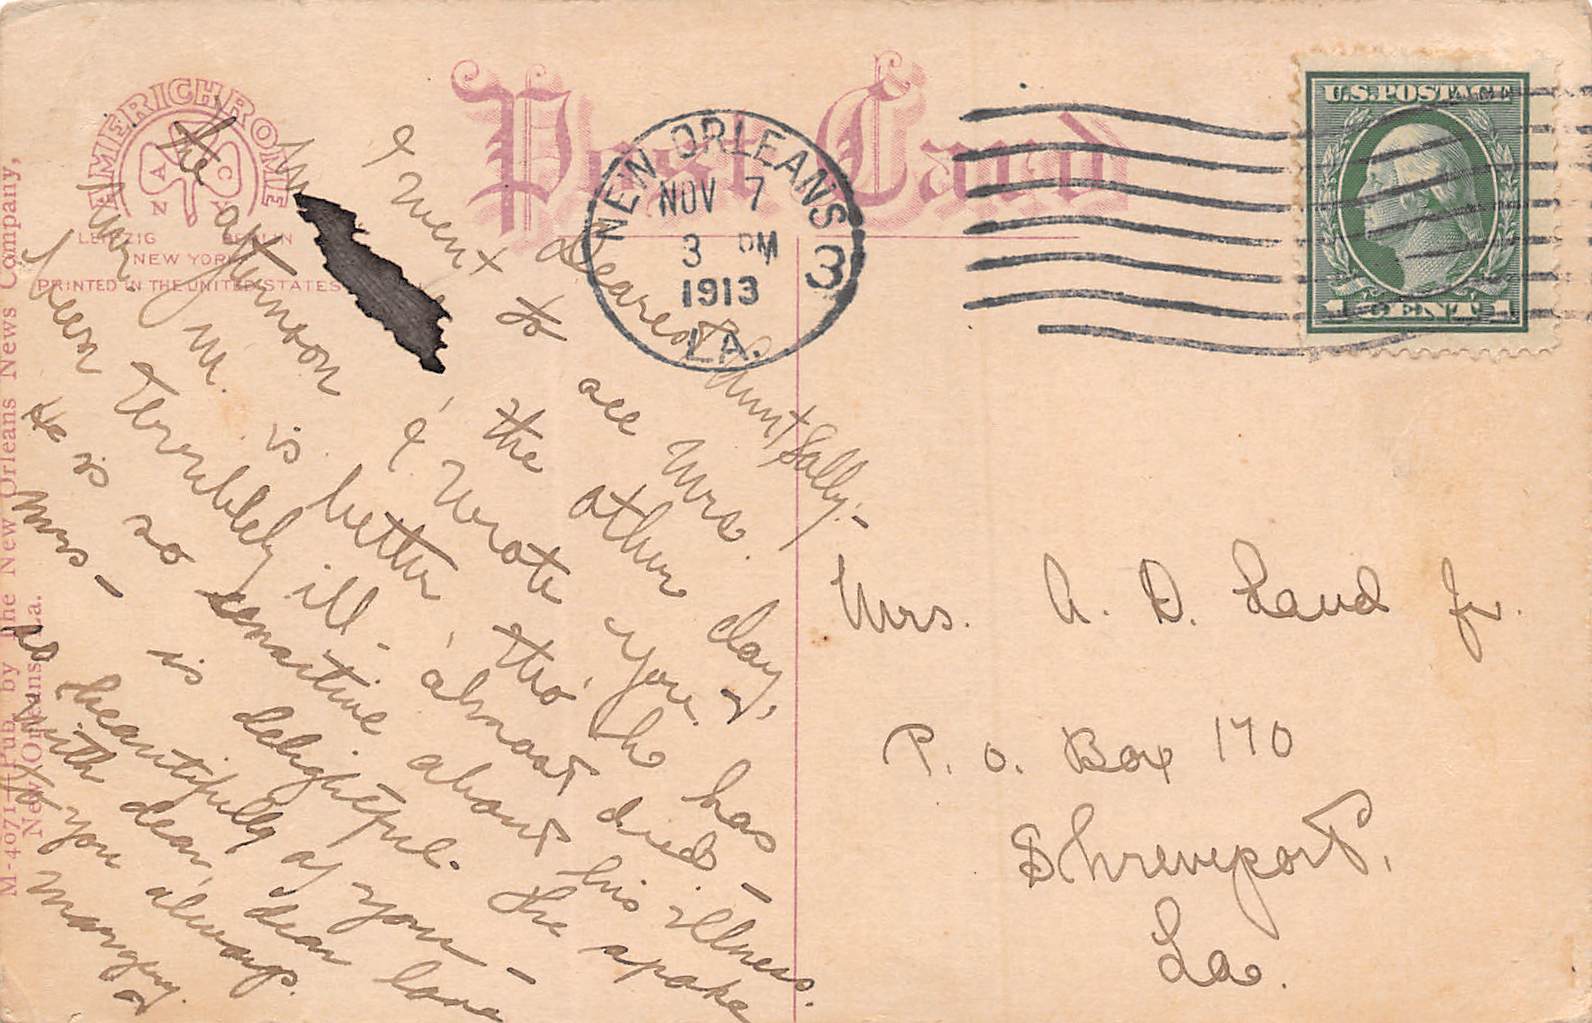 Post Card
AMERICHROME
A N C Y
LEIPZIG BERLIN
NEW YORK
PRINTED IN THE UNITED STATES
M-4071—Pub. by the New Orleans News Company,
New Orleans, La.
NEW ORLEANS
NOV 7
3 PM
1913
LA.
3
U.S.POSTAGE
1 CENT 1
Dearest Aunt Sally:-
I went to see Mrs.
the other day,
the afternoon I wrote you &
Mr. M. is better, tho' he has
been terribly ill - almost died -
He is so sensitive about his illness.
Mrs - is delightful. She spoke
so beautifully of you -
With dear, dear love
to you always.
Margery
Mrs. A. D. Land Jr.
P. O. Box 170
Shreveport,
La.